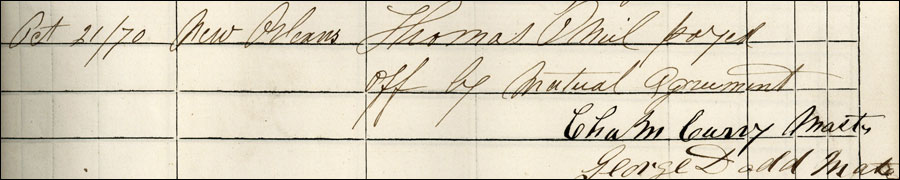 Oct 21/70 New Orleans Thomas O Neil payed
off by Mutual Agreement
Chas M Curry Master
George Dodd Mate